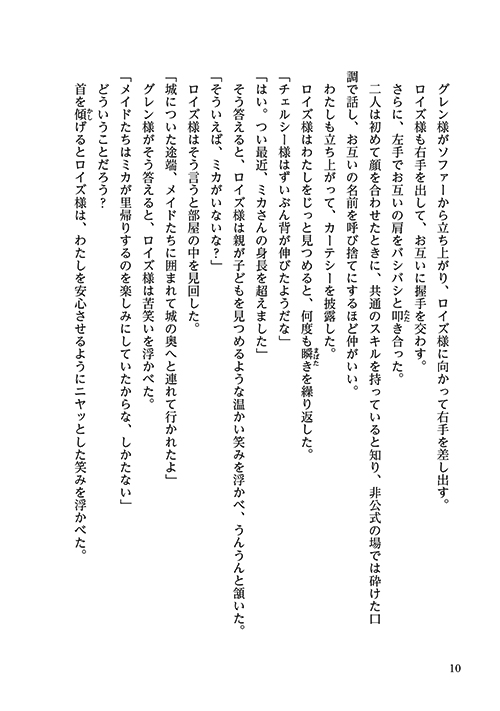 グレン様がソファーから立ち上がり、ロイズ様に向かって右手を差し出す。
ロイズ様も右手を出して、お互いに握手を交わす。
さらに、左手でお互いの肩をバシバシと叩き合った。
二人は初めて顔を合わせたときに、共通のスキルを持っていると知り、非公式の場では砕けた口
調で話し、お互いの名前を呼び捨てにするほど仲がいい。
わたしも立ち上がって、カーテシーを披露した。
ロイズ様はわたしをじっと見つめると、何度も瞬きを繰り返した。
「チェルシー様はずいぶん背が伸びたようだな」
「はい。つい最近、ミカさんの身長を超えました」
そう答えると、ロイズ様は親が子どもを見つめるような温かい笑みを浮かべ、うんうんと頷いた。
「そういえば、ミカがいないな？」
ロイズ様はそう言うと部屋の中を見回した。
「城についた途端、メイドたちに囲まれて城の奥へと連れて行かれたよ」
グレン様がそう答えると、ロイズ様は苦笑いを浮かべた。
「メイドたちはミカが里帰りするのを楽しみにしていたからな、しかたない」
どういうことだろう？
首を傾げるとロイズ様は、わたしを安心させるようにニヤッとした笑みを浮かべた。
10